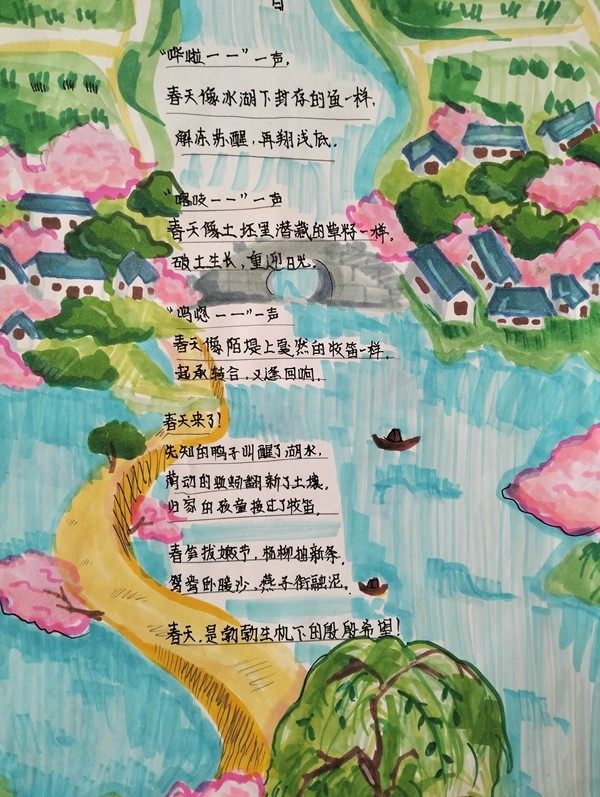 “哗啦——”一声,
春天像冰湖下封存的鱼一样,
解冻苏醒,再翔浅底.
“嘎吱——”一声
春天像土坯里潜藏的草籽一样,
破土生长,重迎日光.
“呜嗯——”一声
春天像陌堤上戛然的牧笛一样,
起承转合,又逢回响.
春天来了!
先知的鸭子叫醒了湖水,
蠕动的蚯蚓翻新了土壤,
归家的牧童接过了牧笛.
春笋拔嫩节,杨柳抽新条,
鸳鸯卧暖沙,燕子衔融泥.
春天,是勃勃生机下的殷殷希望!